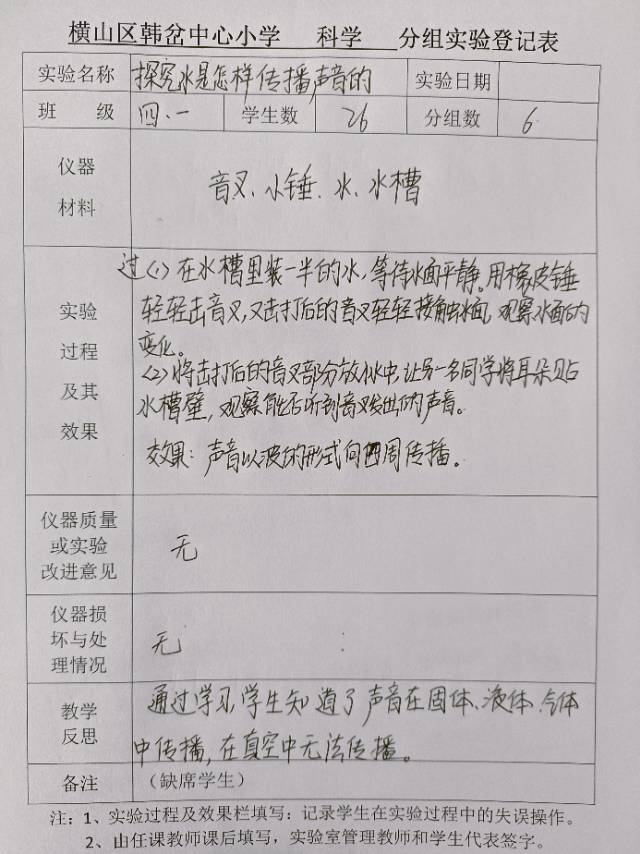 横山区韩岔中心小学 科学 分组实验登记表
实验名称 探究水是怎样传播声音的 实验日期
班 级 四、一 学生数 26 分组数 6
仪器
材料
音叉、小锤、水、水槽
实验
过程
及其
效果
过(1)在水槽里装一半的水,等待水面平静。用橡皮锤
轻轻击音叉,又击打后的音叉轻轻接触水面,观察水面的
变化。
(2)将击打后的音叉部分放似中,让另一名同学将耳朵贴
水槽壁,观察能否听到音叉发出的声音。
效果:声音以波的形式向四周传播。
仪器质量
或实验
改进意见
无
仪器损
坏与处
理情况
无
教学
反思
通过学习,学生知道了声音在固体、液体、气体
中传播,在真空中无法传播。
备注 (缺席学生)
注:1、实验过程及效果栏填写:记录学生在实验过程中的失误操作。
2、由任课教师课后填写,实验室管理教师和学生代表签字。